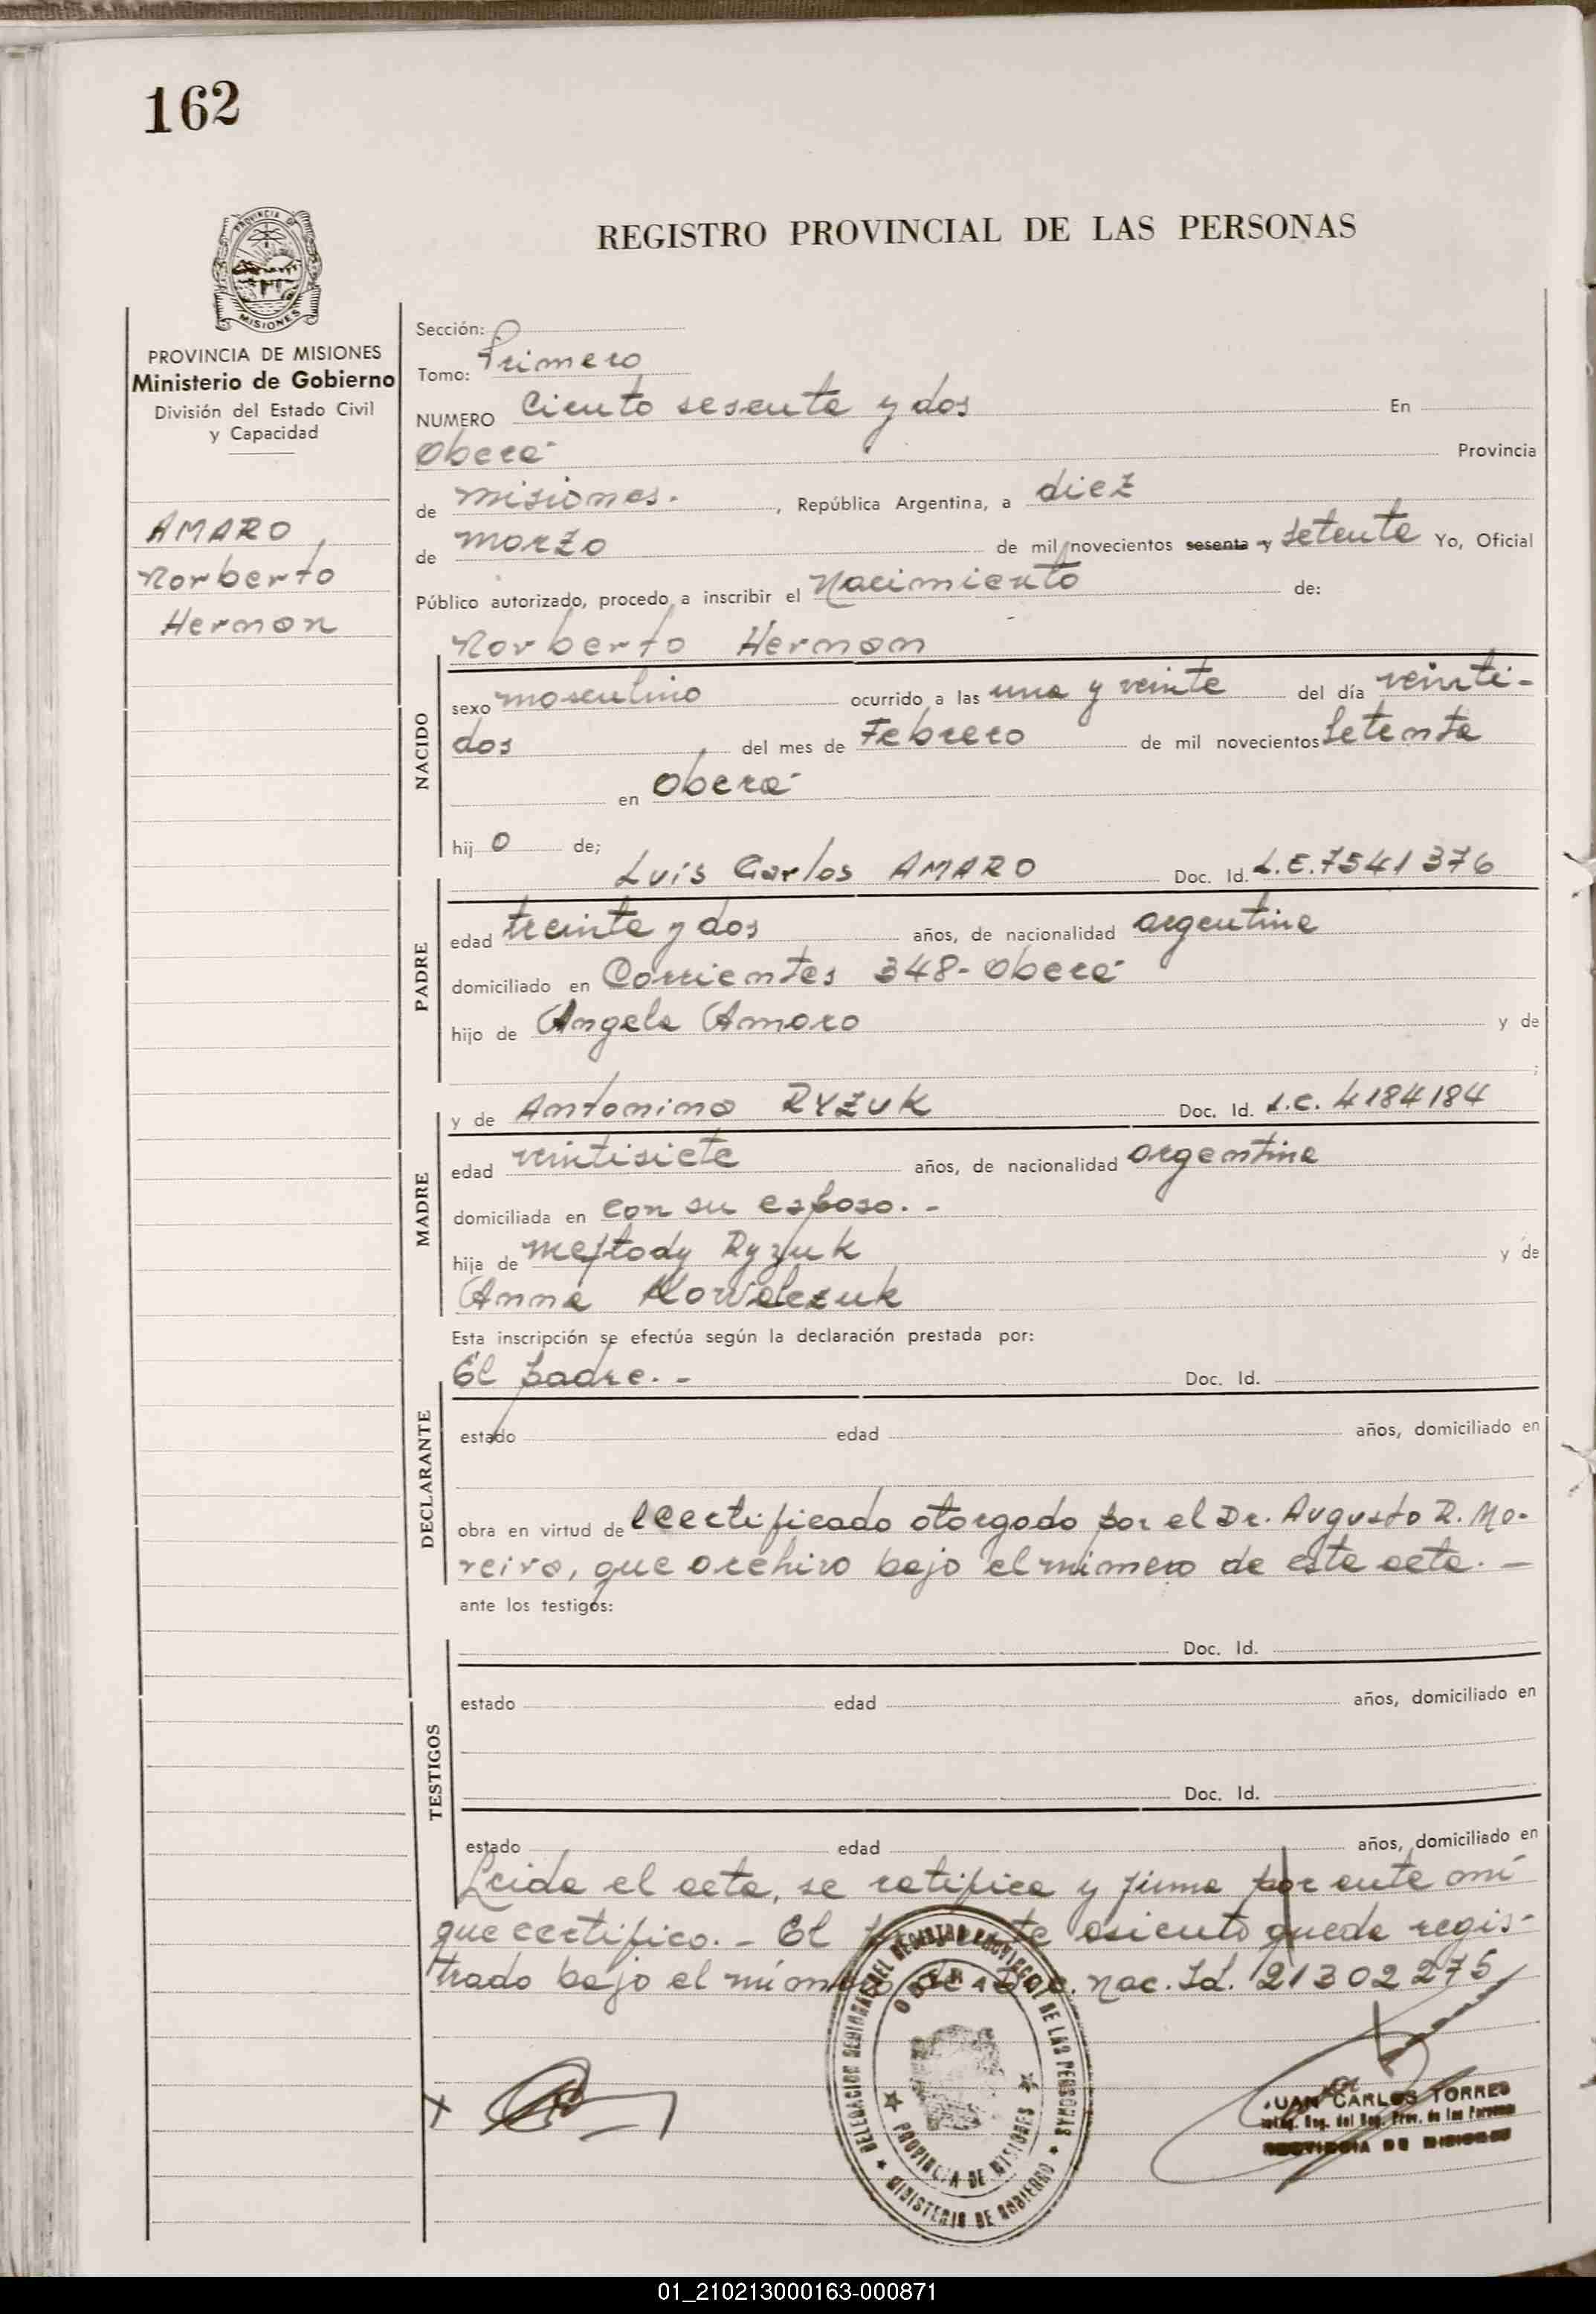 162
REGISTRO PROVINCIAL DE LAS PERSONAS
PROVINCIA DE MISIONES
MISIONES
PROVINCIA DE MISIONES
Ministerio de Gobierno
División del Estado Civil
y Capacidad
AMARO,
Norberto
Hernan
Sección:
Tomo: Primero
NUMERO Ciento sesenta y dos En
Oberá Provincia
de Misiones. , República Argentina, a diez
de Marzo de mil novecientos sesenta y setenta Yo, Oficial
Público autorizado, procedo a inscribir el Nacimiento de:
Norberto Hernan
NACIDO
sexo masculino ocurrido a las una y veinte del día veinti-
dos , del mes de Febrero de mil novecientos setenta
en Oberá
hij o de;
Luis Carlos AMARO Doc. Id. L.E.7541376
PADRE
edad treinta y dos años, de nacionalidad argentina
domiciliado en Corrientes 348- Oberá
hijo de Angela Amaro y de
;
y de Antonina RYZUK Doc. Id. L.C. 4184184
MADRE
edad veintisiete años, de nacionalidad argentina
domiciliada en con su esposo. -
hija de Meftody Ryzuk y de
Anna Kowalczuk
Esta inscripción se efectúa según la declaración prestada por:
El padre. - Doc. Id.
DECLARANTE
estado edad años, domiciliado en
obra en virtud de l certificado otorgado por el Dr. Augusto R. Mo-
reira, que archivo bajo el número de esta acta. -
ante los testigos:
Doc. Id.
TESTIGOS
estado edad años, domiciliado en
Doc. Id.
estado edad años, domiciliado en
Leida el acta, se ratifica y firma por ante mí
que certifico. - El presente asiento queda regis-
trado bajo el número de Doc. Nac. Id. 21302275
DELEGACION REGIONAL DEL REGISTRO PROVINCIAL DE LAS PERSONAS
OBERA
PROVINCIA DE MISIONES
MINISTERIO DE GOBIERNO
JUAN CARLOS TORRES
Reg. del Reg. Prov. de las Personas
PROVINCIA DE MISIONES
01_210213000163-000871